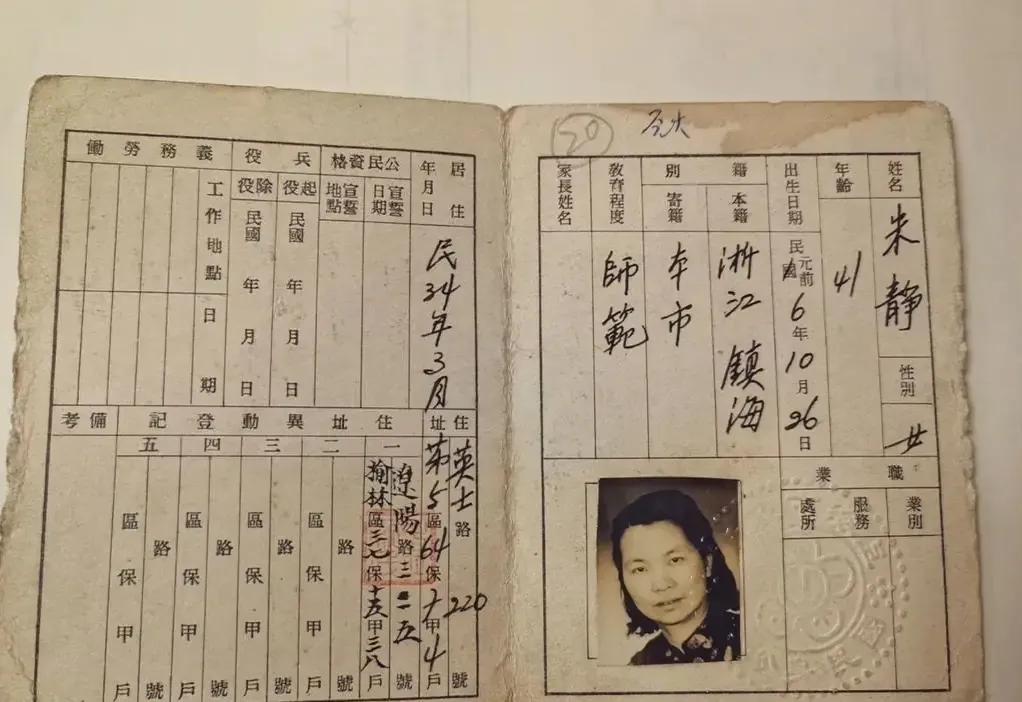 20
姓名 朱靜
性別 女
年齡 41
出生日期 民國元前6年10月26日
籍別
本籍 浙江鎮海
寄籍 本市
教育程度 師範
家長姓名
職業
業別
服務處所
居住年月日 民34年3月
公民資格
宣誓日期
宣誓地點
兵役
起役 民國 年 月 日
除役 民國 年 月 日
義務勞動
工作地點
日期
住址
英士路220號
第5區64保十甲4戶
住址異動登記
一
遼陽路三一一五號
榆林區三七保十五甲三八戶
二
路 號
區 保 甲 戶
三
路 號
區 保 甲 戶
四
路 號
區 保 甲 戶
五
路 號
區 保 甲 戶
備考